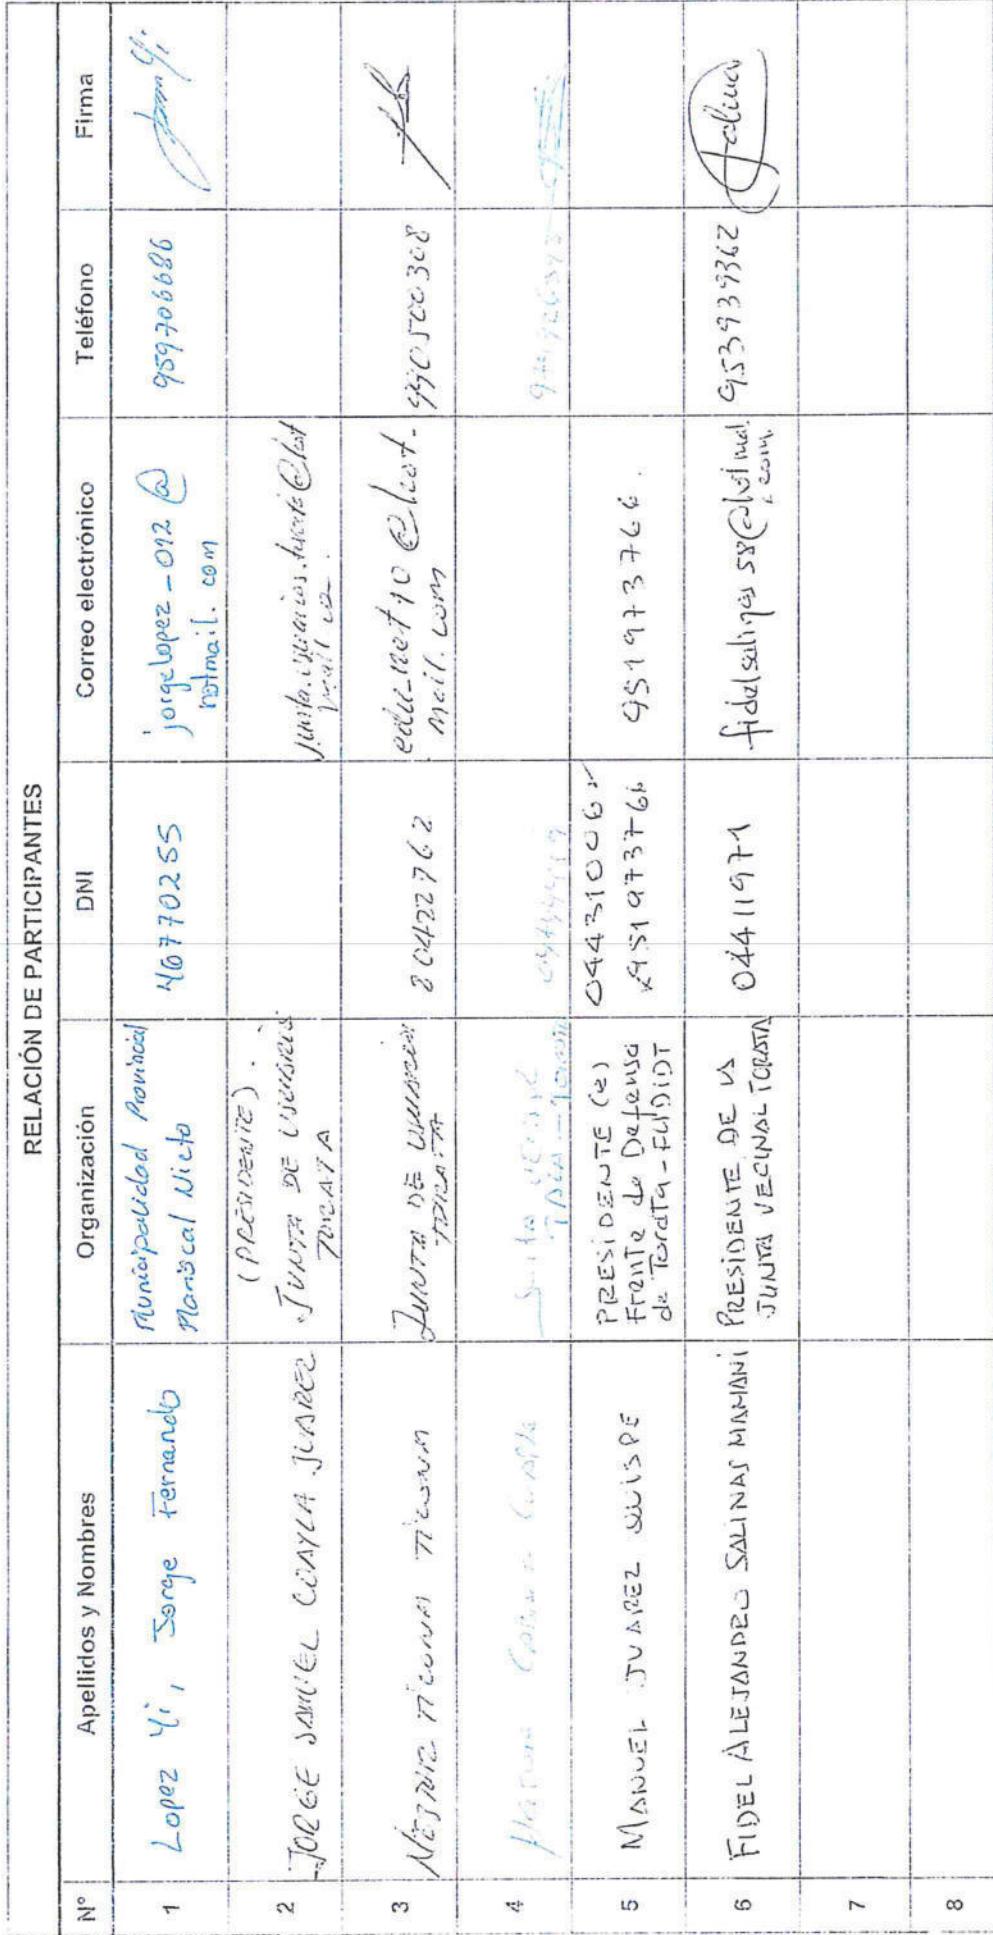 RELACIÓN DE PARTICIPANTES
Nº Apellidos y Nombres Organización DNI Correo electrónico Teléfono Firma
1 Lopez Yi, Jorge Fernando Municipalidad Provincial
Mariscal Nieto 46770255 jorgelopez_012@
hotmail.com 959706686
2 JORGE SAMUEL COAYLA JUAREZ (PRESIDENTE).
JUNTA DE USUARIOS
TORATA junta.usuarios.torata@hot
3 TICONA TICONA JUNTA DE USUARIOS
TORATA 80422762 edu_net10@hot-
mail.com 990500308
4
5 MANUEL JUAREZ QUISPE PRESIDENTE (e)
Frente de Defensa
de Torata - FUDIDT
951973766 951973766.
6 FIDEL ALEJANDRO SALINAS MAMANI PRESIDENTE DE LA
JUNTA VECINAL TORATA 04411971 fidelsalinas58@hotmail
.com 953939362
7
8